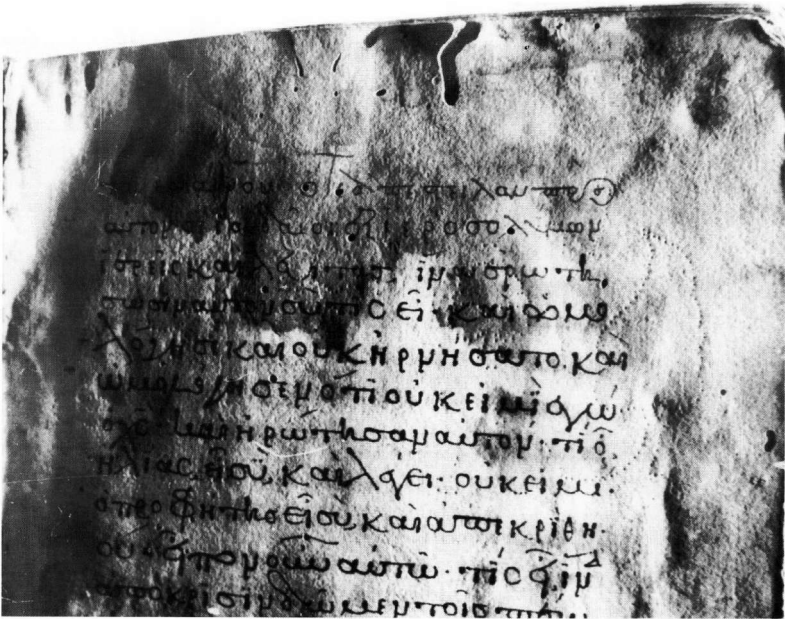 πρὸς
αὐτὸν ἐξ ἱεροσολύμων
ἱερεῖς καὶ ἵνα ἐρωτή
σωσιν αὐτὸν σὺ τίς εἶ· καὶ ὡμο
λόγησε καὶ οὐκ ἠρνήσατο· καὶ
ὡμολόγησεν ὅτι οὐκ εἰμὶ ἐγὼ
ὁ χς· καὶ ἠρώτησαν αὐτόν· τί οὖ
ἠλίας εἶ σύ· καὶ λέγει· οὐκ εἰμι·
ὁ προφήτης εἶ σύ· καὶ ἀπεκρίθη·
οὔ· εἶπον οὖν αὐτῷ· τίς εἶ ἵνα
ἀπόκρισιν δῶμεν τοῖς